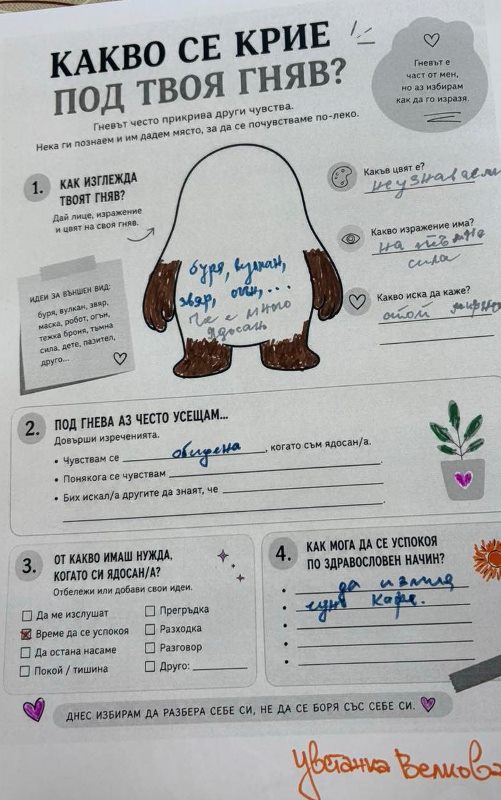 КАКВО СЕ КРИЕ
ПОД ТВОЯ ГНЯВ?
Гневът често прикрива други чувства.
Нека ги познаем и им дадем място, за да се почувстваме по-леко.
Гневът е
част от мен,
но аз избирам
как да го изразя.
1.
КАК ИЗГЛЕЖДА
ТВОЯТ ГНЯВ?
Дай лице, изражение
и цвят на своя гняв.
ИДЕИ ЗА ВЪНШЕН ВИД:
буря, вулкан, звяр,
маска, робот, огън,
тежка броня, тъмна
сила, дете, пазител,
друго...
буря, вулкан,
звяр, огън,...
Че е много
ядосан
Какъв цвят е?
Какво изражение има?
на тъмна
сила
Какво иска да каже?
стой
2.
ПОД ГНЕВА АЗ ЧЕСТО УСЕЩАМ...
Довърши изреченията.
• Чувствам се обидена, когато съм ядосан/а.
• Понякога се чувствам
• Бих искал/а другите да знаят, че
3.
ОТ КАКВО ИМАШ НУЖДА,
КОГАТО СИ ЯДОСАН/А?
Отбележи или добави свои идеи.
Да ме изслушат
Време да се успокоя
Да остана насаме
Покой / тишина
Прегръдка
Разходка
Разговор
Друго:
4.
КАК МОГА ДА СЕ УСПОКОЯ
ПО ЗДРАВОСЛОВЕН НАЧИН?
да изпия
едно кафе.
ДНЕС ИЗБИРАМ ДА РАЗБЕРА СЕБЕ СИ, НЕ ДА СЕ БОРЯ СЪС СЕБЕ СИ.
Цветанка Велкова